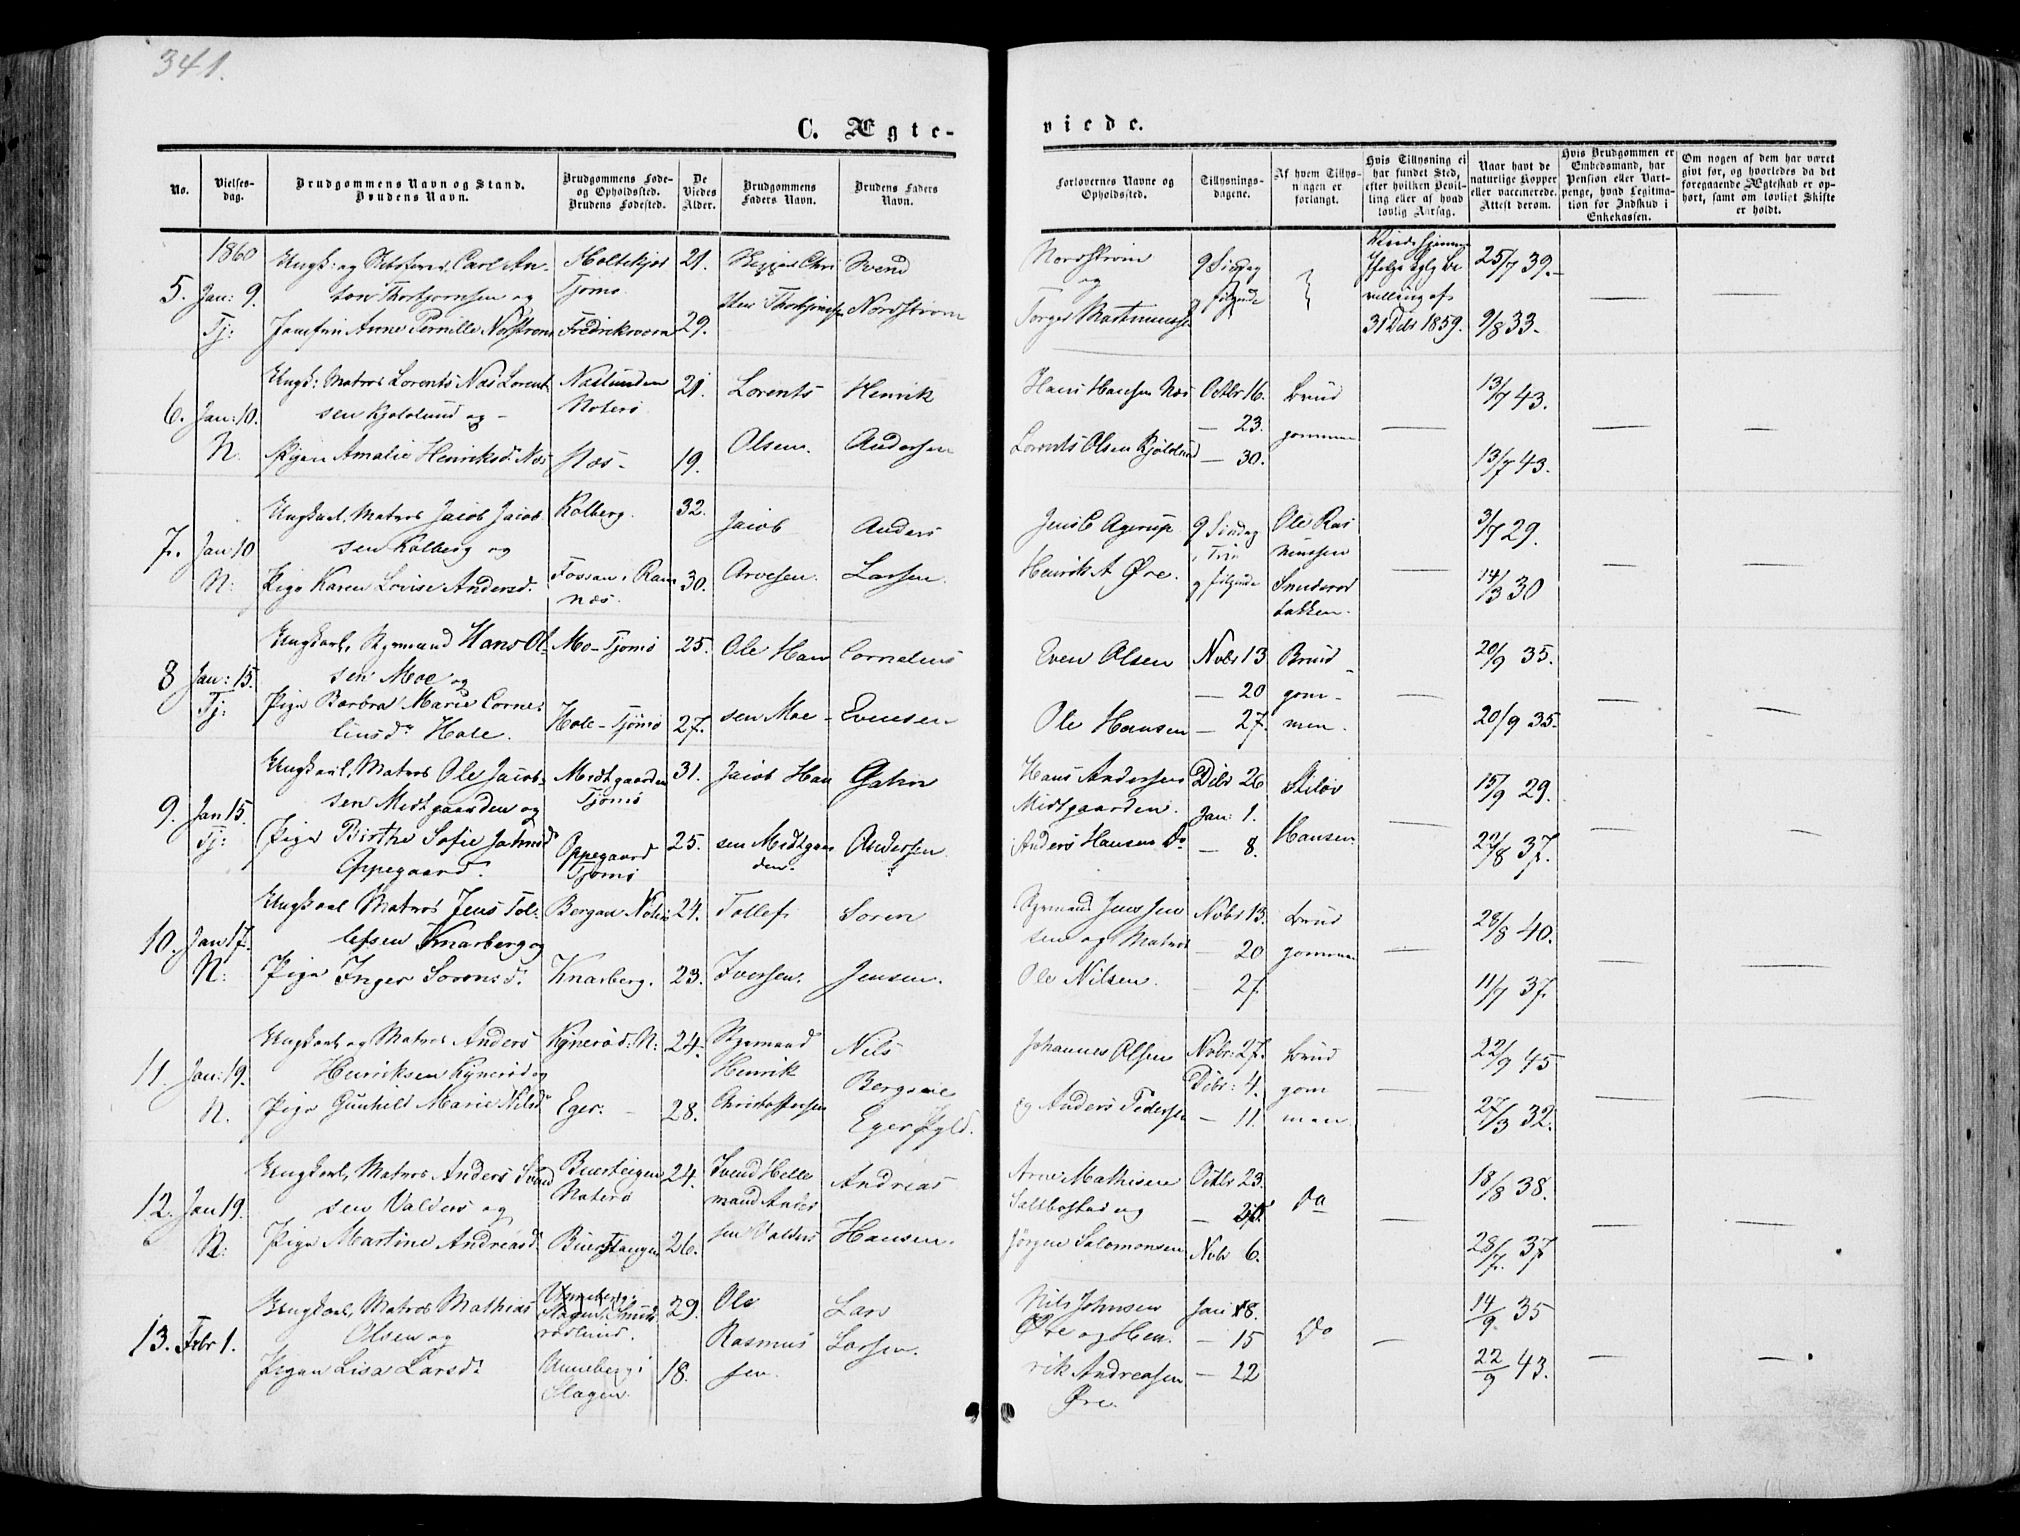 341.
C. Ægte-
viede.
No.
Vielses-
dag.
Brudgommens Navn og Stand.
Brudens Navn.
Brudgommens Føde-
og Opholdssted.
Brudens Fødested.
De
Viedes
Alder.
Brudgommens
Faders Navn.
Brudens Faders
Navn.
Forlovernes Navne og
Opholdssted.
Tillysnings-
dagene.
Af hvem Tillys-
ningen er
forlangt.
Hvis Tillysning ei
har fundet Sted,
efter hvilken Bevil-
ling eller af hvad
lovlig Aarsag.
Naar havt de
naturlige Kopper
eller vaccinerede.
Attest derom.
Hvis Brudgommen er
Embedsmand, har
Pension eller Vart-
penge, hvad Legitima-
tion for Indskud i
Enkekassen.
Om nogen af dem har været
givt før, og hvorledes da det
foregaaende Ægteskab er op-
hørt, samt om lovligt Skifte
er holdt.
1860
5. Jan: 9.
Tj:
Carl An-
ton Thorbjørnsen og
Jomfru Anne Pernille Norstrøm
Holtekjær
Tjømø.
Fredriksværn
21.
29.
Svend
Nordstrøm
Nordstrøm
og
9 Sindag
følgende
31 Debr 1859.
25/7 39.
9/8 33.
6. Jan: 10.
N.
Ungk: Matros Lorents Næs Lorent
sen Kjøldlund og -
Pigen Amalie Henriksd. Næs
Næslunden
Nøterø
Næs -
21.
19.
Lorents
Olsen.
Henrik
Andersen
Hans Hansen Næs
Lorents Olsen Kjøldlund
Octbr 16.
- 23.
- 30.
Brud
gommen
13/7 43.
13/7 43.
7. Jan 10
N:
Ungkarl, Matros Jacob Jacob
sen Kolberg og
Pige Karen Lovise Andersd.
Kolberg.
Fossan i Ram
næs.
32.
30.
Jacob
Arvesen.
Anders
Larsen.
Jens C Agerup
Henrik A Øre.
9 Sindag
Trin
og følgende
Ole Ras
mussen
Smiderød
bakken.
3/7 29.
14/3 30
8 Jan: 15.
Tj:
Ungkarl, Styrmand Hans Ol-
sen Moe og
Pige Barbra Marie Corne-
liusd. Hole.
Mo - Tjømø
Hole - Tjømø
25.
27.
Ole Han
sen Moe -
Cornelius
Evensen
Even Olsen
Ole Hansen
Nvbr 13
- 20
- 27.
Brud
gom -
men.
20/9 35.
20/9 35.
9. Jan 15.
Tj:
Ungkarl, Matros Ole Jacob-
sen Midtgaarden og
Pige Birthe Sofie Jahnsd.
Oppegaard.
Midtgaarden
Tjømø
Oppegaard
Tjømø
31.
25.
Jacob Han
sen Midtgaar
den.
Jahn
Andersen
Hans Andersen
Midtgaarden.
Anders Hansen Do
Debr 26
Jan: 1.
- 8.
Hansen
15/9 29.
22/8 37.
10. Jan 17.
N:
Ungkarl Matros Jens Tol-
lefsen Knarberg og
Pige Inger Sørensd.
Bergan Nøterø
Knarberg.
24.
23.
Tollef
Iversen.
Søren
Jensen.
Styrmand Jens Jen
sen og Matros
Ole Nilsen.
Nvbr 13.
- 20
- 27.
Brud
gommen
28/8 40.
11/7 37.
11. Jan: 19.
N.
Ungkarl og Matros Anders
Henriksen Kynerød og
Pige Gunhild Marie Nilsd.
Kynerød: N:
Eger. -
24.
28.
Styrmand
Henrik
Christoffersen
Nils
Bergseie
Eger
Johannes Olsen
og Anders Pedersen
Nvbr: 27.
Debr: 4.
- 11.
Brud
gom
men
22/9 45
27/3 32.
12. Jan 19.
N:
Ungkarl, Matros Anders Svend
sen Valders og
Pige Martine Andreasd.
Buerstangen
Nøterø
Buerstangen
24.
26.
Svend Helle
mand Anders
sen Valders
Andreas
Hansen.
Arne Mathisen
Saltbostad og
Jørgen Salomonsen
Octbr 23.
- 30.
Nvbr 6.
Do
18/8 38.
28/7. 37
13. Febr 1.
Ungkarl, Matros Mathias
Olsen og
Pigen Lisa Larsd.
Unneberg i
Slagen
Unneberg i
Slagen.
29.
18.
Ole
Rasmus
sen.
Lars
Larsen.
Nils Johnsen
Øre og Hen.
rik Andreasen
Øre.
Jan 8.
- 15
- 22
Do
14/9. 35
22/9 43.